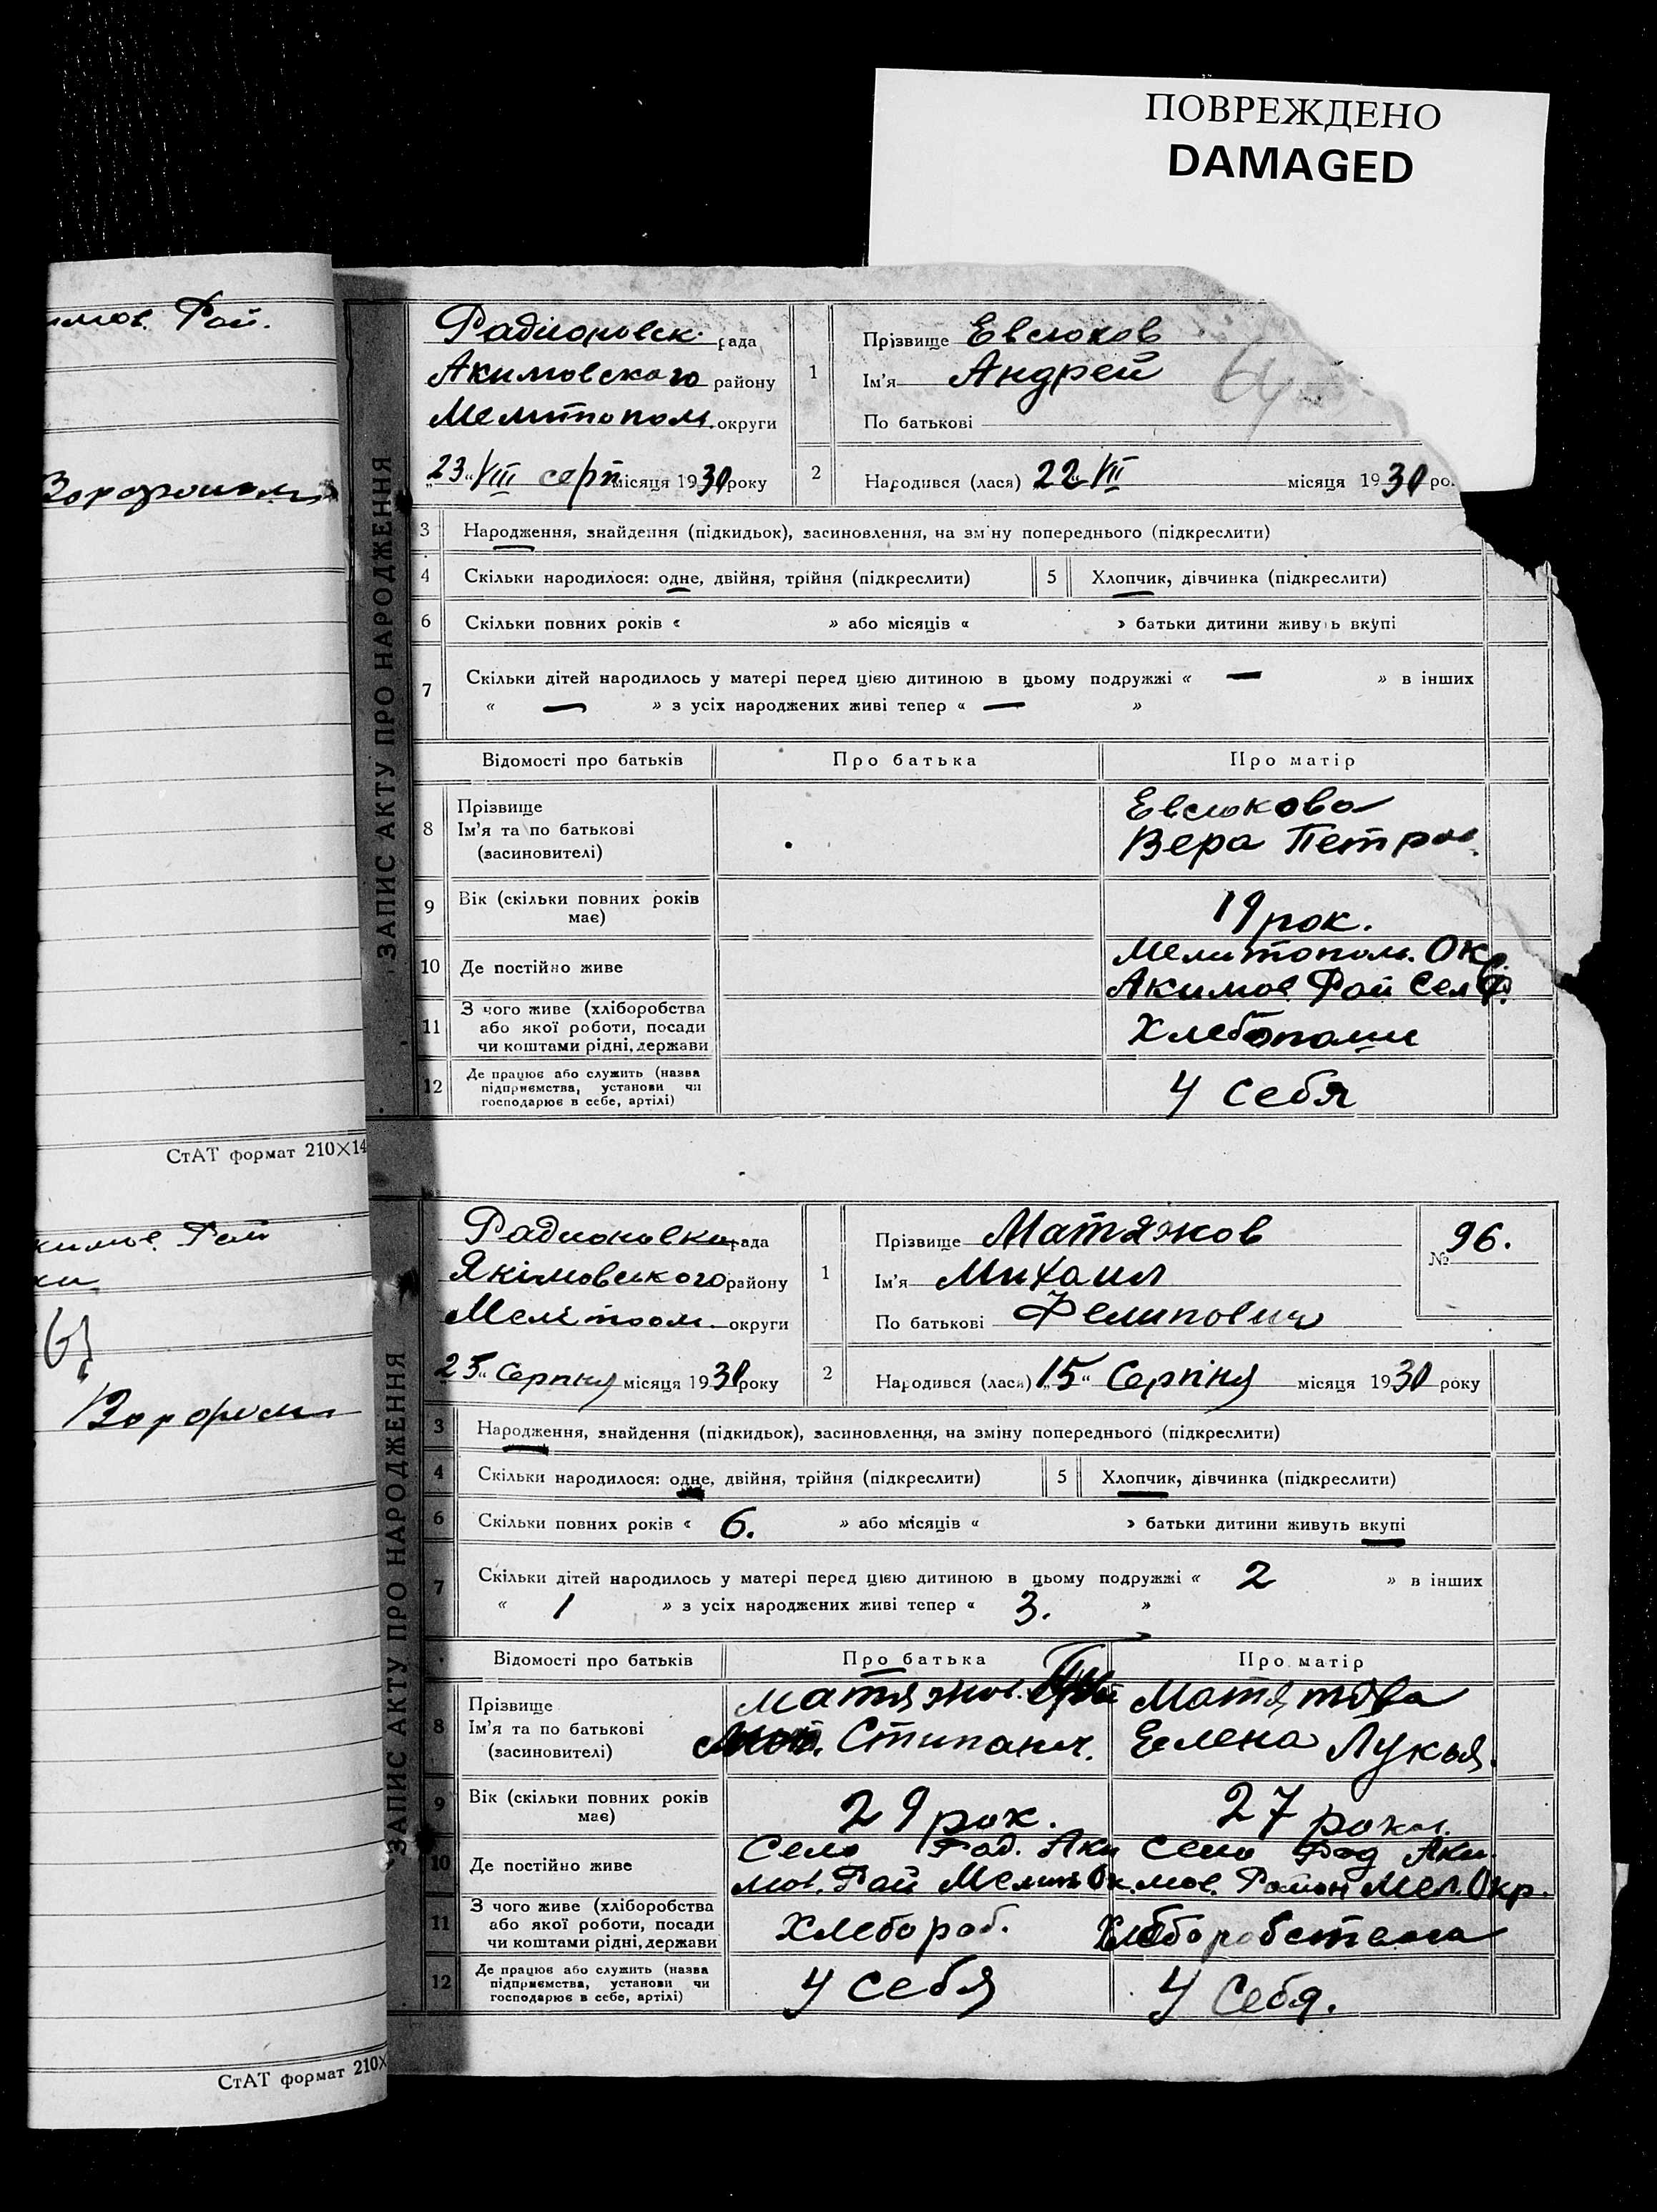 ПОВРЕЖДЕНО
DAMAGED
Рай.
СтАТ формат 210×14
Рай
СтАТ формат 210×
ЗАПИС АКТУ ПРО НАРОДЖЕННЯ
Радионовск. рада
Акимовского району
Мелитопол. округи
„23“ VIII серп місяця 1930 року
1 Прізвище Евсюков
Ім'я Андрей
По батькові
2 Народився (лася) 22 VII місяця 1930 ро
3 Народження, знайдення (підкидьок), засиновлення, на зміну попереднього (підкреслити)
4 Скільки народилося: одне, двійня, трійня (підкреслити) 5 Хлопчик, дівчинка (підкреслити)
6 Скільки повних років « » або місяців « » батьки дитини живуть вкупі
7 Скільки дітей народилось у матері перед цією дитиною в цьому подружжі « — » в інших
« — » з усіх народжених живі тепер « — »
Відомості про батьків Про батька Про матір
8 Прізвище
Ім'я та по батькові
(засиновителі)
Евсюкова
Вера Петров.
9 Вік (скільки повних років
має)
19 рок.
10 Де постійно живе
Мелитопол. Ок
Акимов. Рай Село
11 З чого живе (хліборобства
або якої роботи, посади
чи коштами рідні, держави
12 Де працює або служить (назва
підприємства, установи чи
господарює в себе, артілі)
У себя
ЗАПИС АКТУ ПРО НАРОДЖЕННЯ
Радионовка рада
Якімовського району
Мелітопол. округи
„25“ Серпня місяця 1930 року
1 Прізвище Матяжов
Ім'я Михаил
По батькові Фелипович
№ 96.
2 Народився (лася) „15“ Серпня місяця 1930 року
3 Народження, знайдення (підкидьок), засиновлення, на зміну попереднього (підкреслити)
4 Скільки народилося: одне, двійня, трійня (підкреслити) 5 Хлопчик, дівчинка (підкреслити)
6 Скільки повних років « 6. » або місяців « » батьки дитини живуть вкупі
7 Скільки дітей народилось у матері перед цією дитиною в цьому подружжі « 2 » в інших
« 1 » з усіх народжених живі тепер « 3. »
Відомості про батьків Про батька Про матір
8 Прізвище
Ім'я та по батькові
(засиновителі)
Матяжов.
Стипанл.
Елена Лукья.
9 Вік (скільки повних років
має)
29 рок.
27 рокав.
10 Де постійно живе
Село Рад. Аки
мов. Рай Мелит Ок.
Село Рад Аки
мов. Район Мел. Окр.
11 З чого живе (хліборобства
або якої роботи, посади
чи коштами рідні, держави
Хлебороб.
Хлеборобством
12 Де працює або служить (назва
підприємства, установи чи
господарює в себе, артілі)
У себя
У себя.